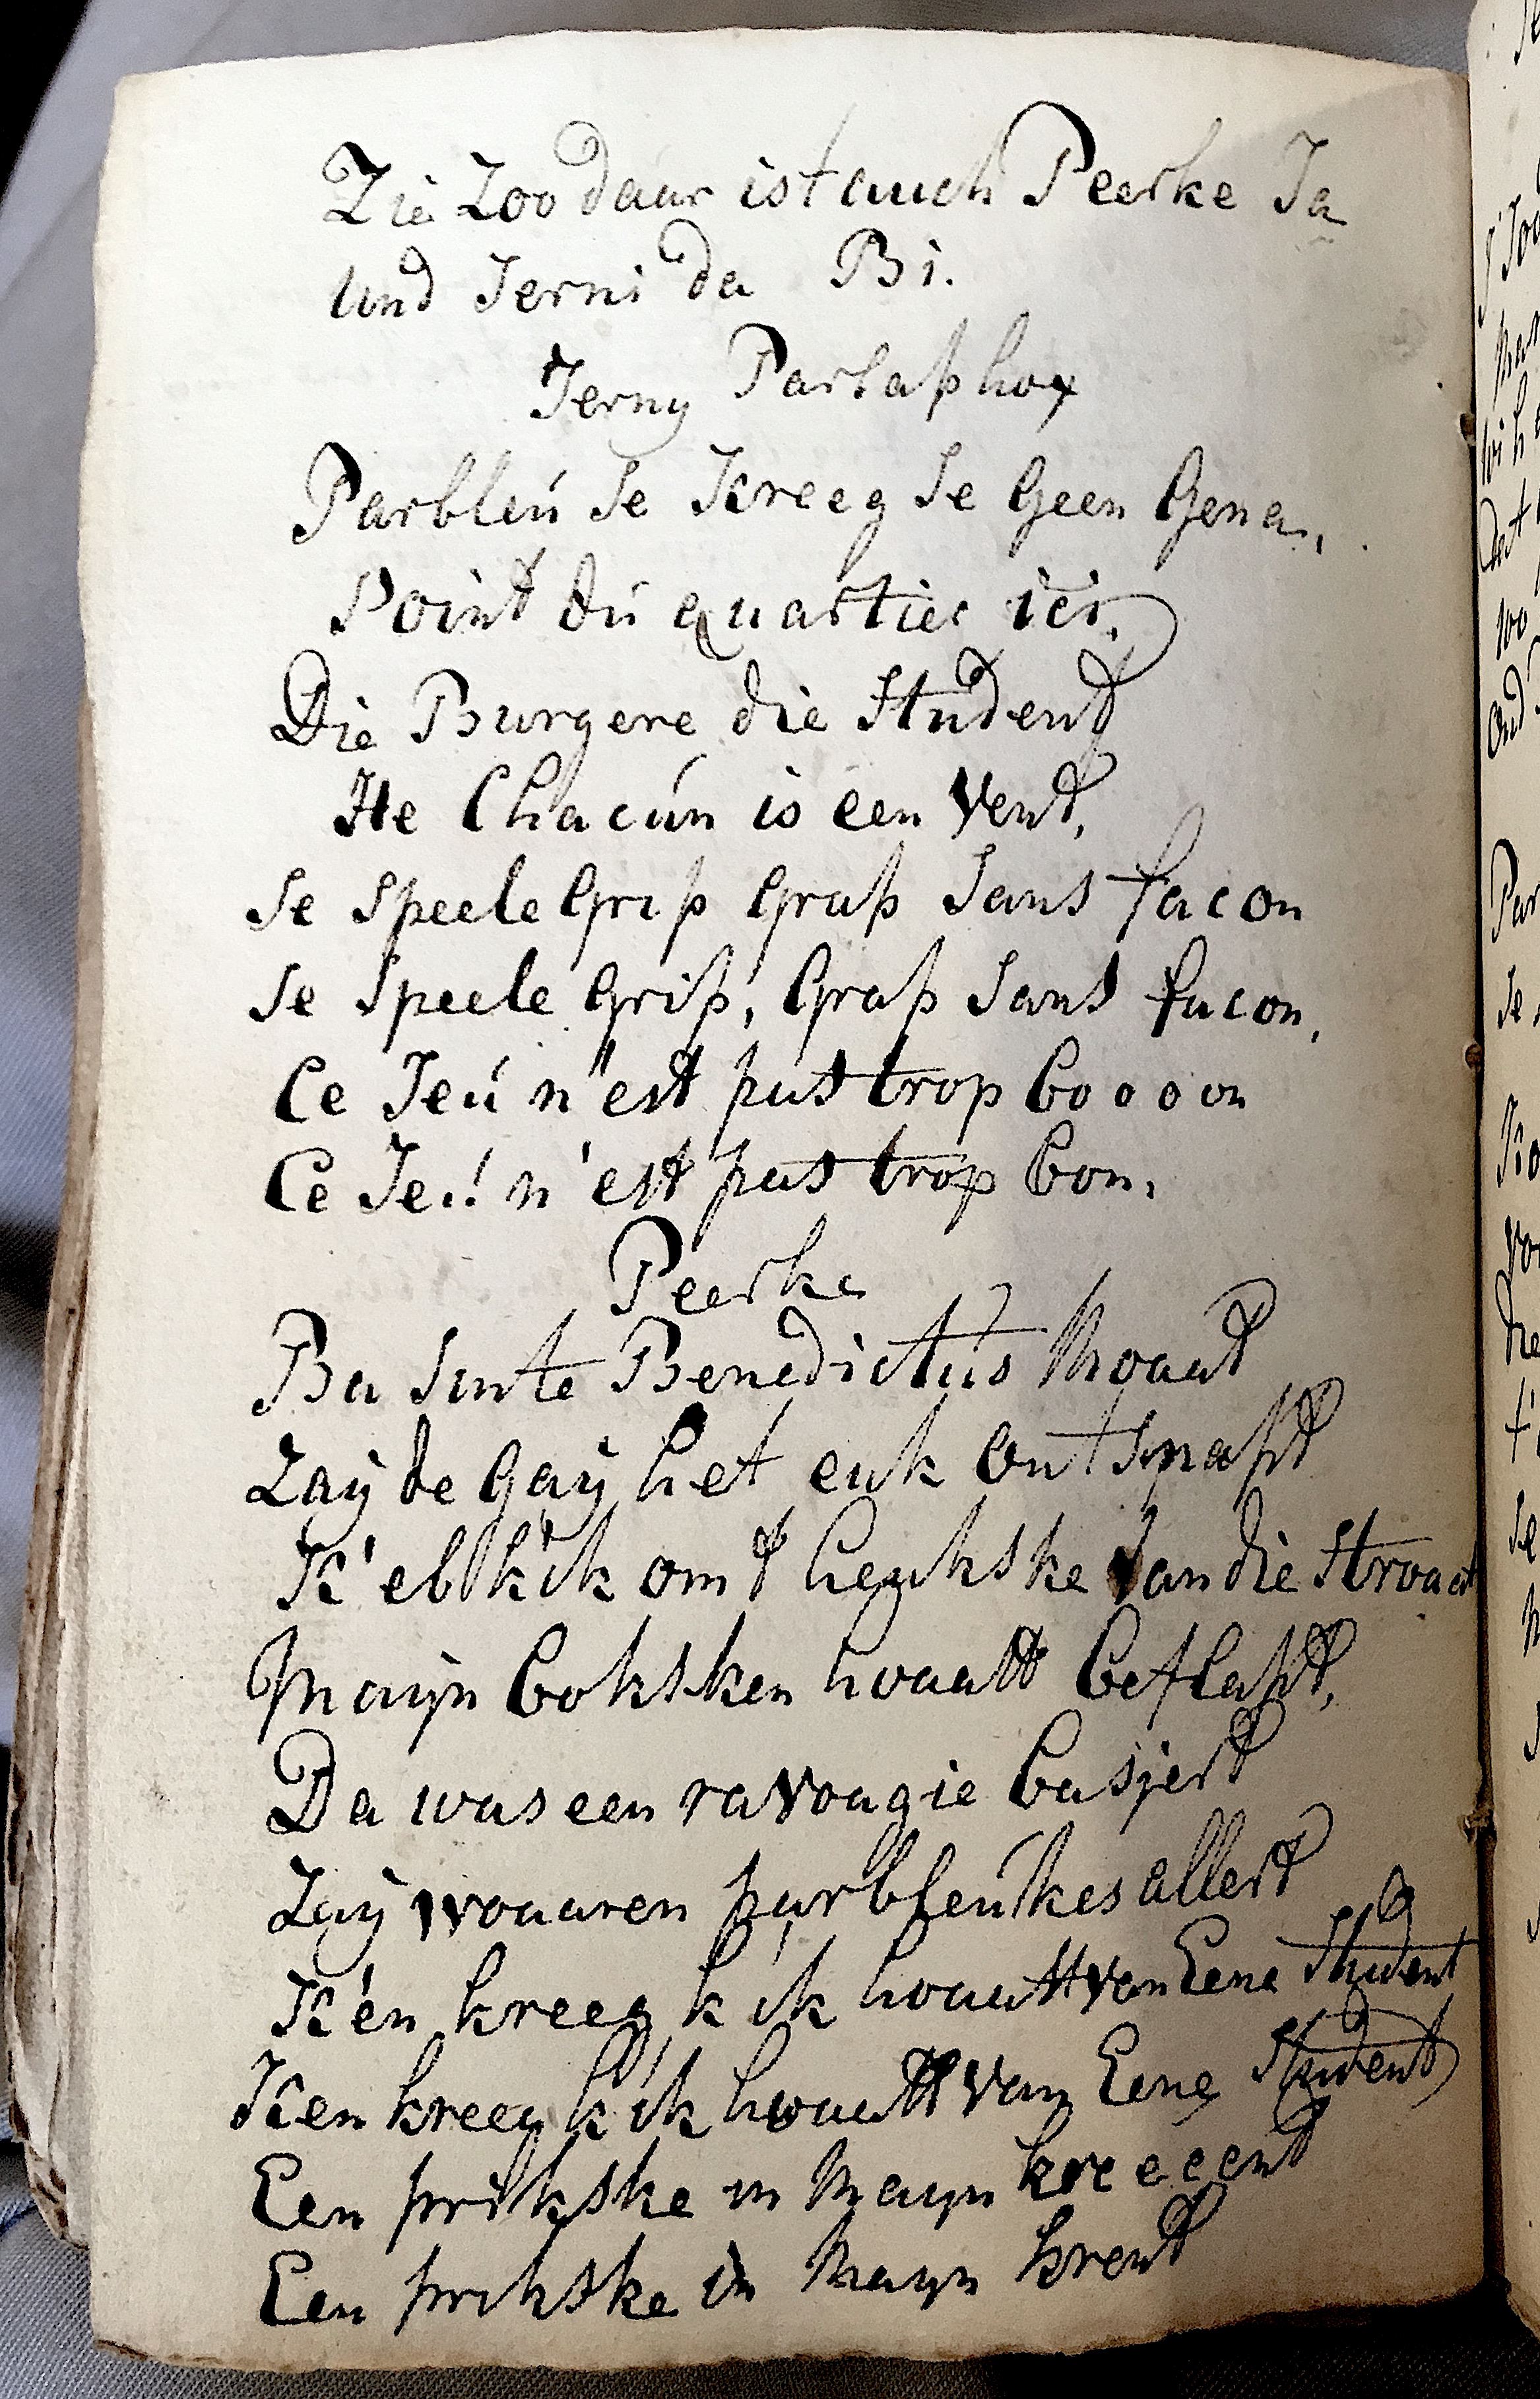 Zie Zoo daar ist auch Peerke Ja
Und Jerni da Bi.
Jerny Parlaphox
Parbleú Je Kreeg Je Geen Gena,
Point dú quartier ici,
Die Burgere die Student
He Chacún is een Vent,
Se Speele Grip Grap Sans facon
Se Speele Grip, Grap Sans facon,
Ce Jeú n'est pas trop booooon
Ce Jeú n'est pas trop bon,
Peerke
Ba Sinte Benedictus Moaat
Zaÿde Gaÿ het euk ontsnapt
K'eb k'ik om t heukske Van die Stroaat
Mayn boksken hoaatt beflapt,
Da was een ravoagie basjert
Zaÿ woaaren parbleúkes allert
K'en kreeg k'ik hoaatt van Eene Student
K'en kreeg k'ik hoaatt van Eene Student
Een prikske in Mayn kreeeent
Een prikske in Mayn krent